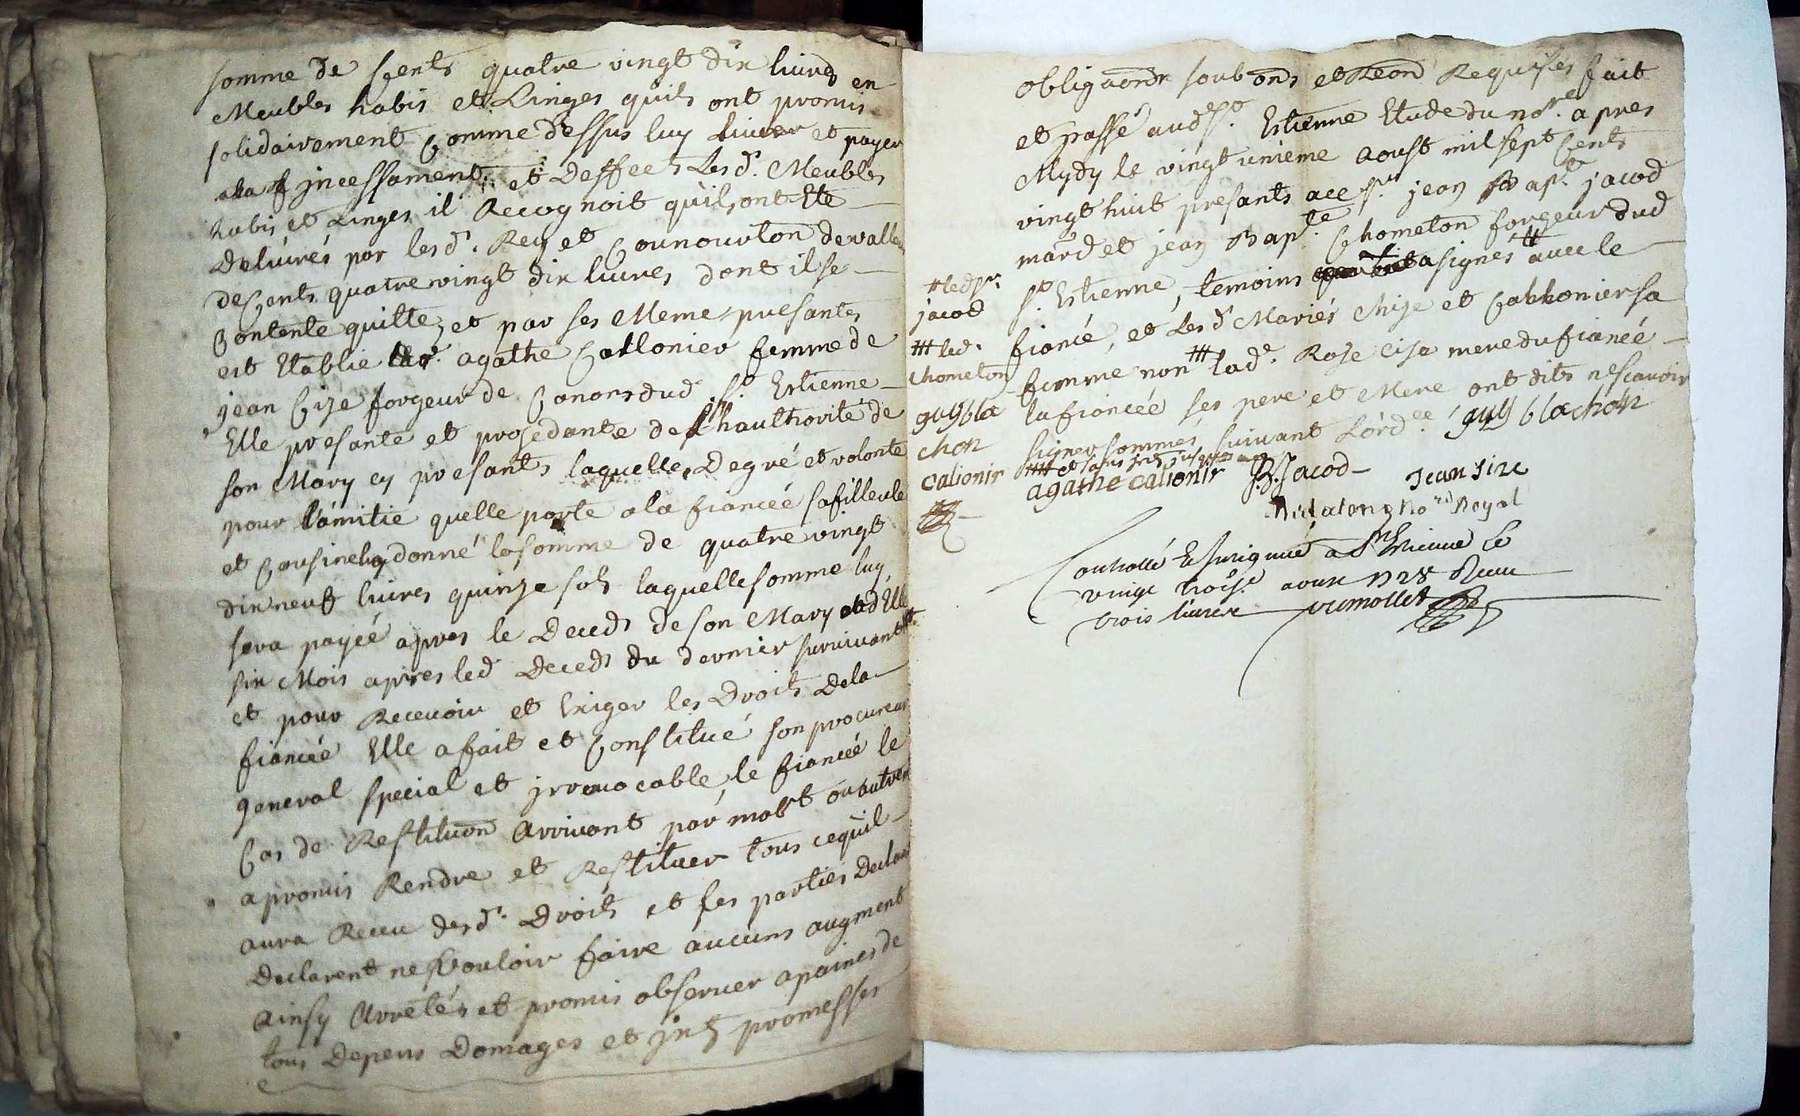 somme de Cents quatre vingt dix livres en
Meubles habis et Linges quils ont promis
solidairement Comme dessus luy livrer et payer
jncessament et Deffeet Lesd. Meubles
habis et Linges il Recognoit quils ont Ete
Delivrés par lesd. Rey et Cournourlon de valleur
de Cents quatre vingt dix livres dont il se
Contente quitte, et par ses Memes presantes
est Etablie agathe Callonier femme de
jean Cize forgeur de Canons dud St Estienne
Elle presante et prosedante de l'haulthorité de
son Mary cy presants laquelle, De gré et volonté
pour l'amitie quelle porte a la fiancée sa filleule
et Cousine luy donné la somme de quatre vingt
dix neuf livres quinze sols laquelle somme luy
sera payée apres le Deceds de son Mary et d'Elle
six Mois apres led Deceds du dernier survivant
et pour Recevoir et Exiger les Droits Dela
fiancée Elle a fait et Constitué son procureur
general special et jrevocable, le fiancée le
Cas de Restituon Arrivant par mort ou autrem
a promis Rendre et Restituer tous cequil
aura Receu desd. Droits et les parties Declar
Declarent ne vouloir faire aucuns augment
Ainsy Arretés et promis observer a paines de
tous Depens Domages et promesses
obligaons soub ons et Reon Requises fait
et passé aud St. Estienne Etude du nore. apres
Mydy le vingt unieme aoust mil sept Cents
vingt huit presants jean Bapt. jacod
mard et jean Bapte Chometon forgeur dud
St Estienne, temoins asignés avec le
# led sr.
jacod
fiancé, et Lesd Mariés Chize et Callonier sa
### led.
chometon
femme non ### lade. Roze Cisa mere du fiancée
guy bla
chon
la fiancée ses pere et Mere ont dits ne scavoir
signer sommés suivant Lordce guy blachon
calionir
agathe calionir JBJacod Jean Size
no Royal
Controllé Et surigmé a St Etienne Le
vingt troise. aoust 1728 Receu
trois livres